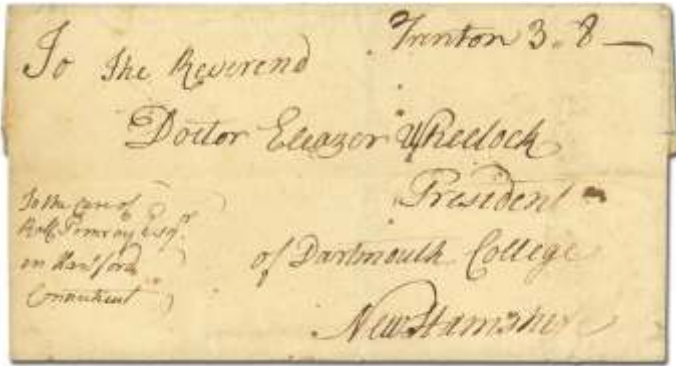 Trenton 3. 8 —
To The Reverend
Doctor Eleazor Wheelock
President
of Dartmouth College
New Hamshire
To the care of
Ralf Pomroy Esqr
in Hartford
Connecticut